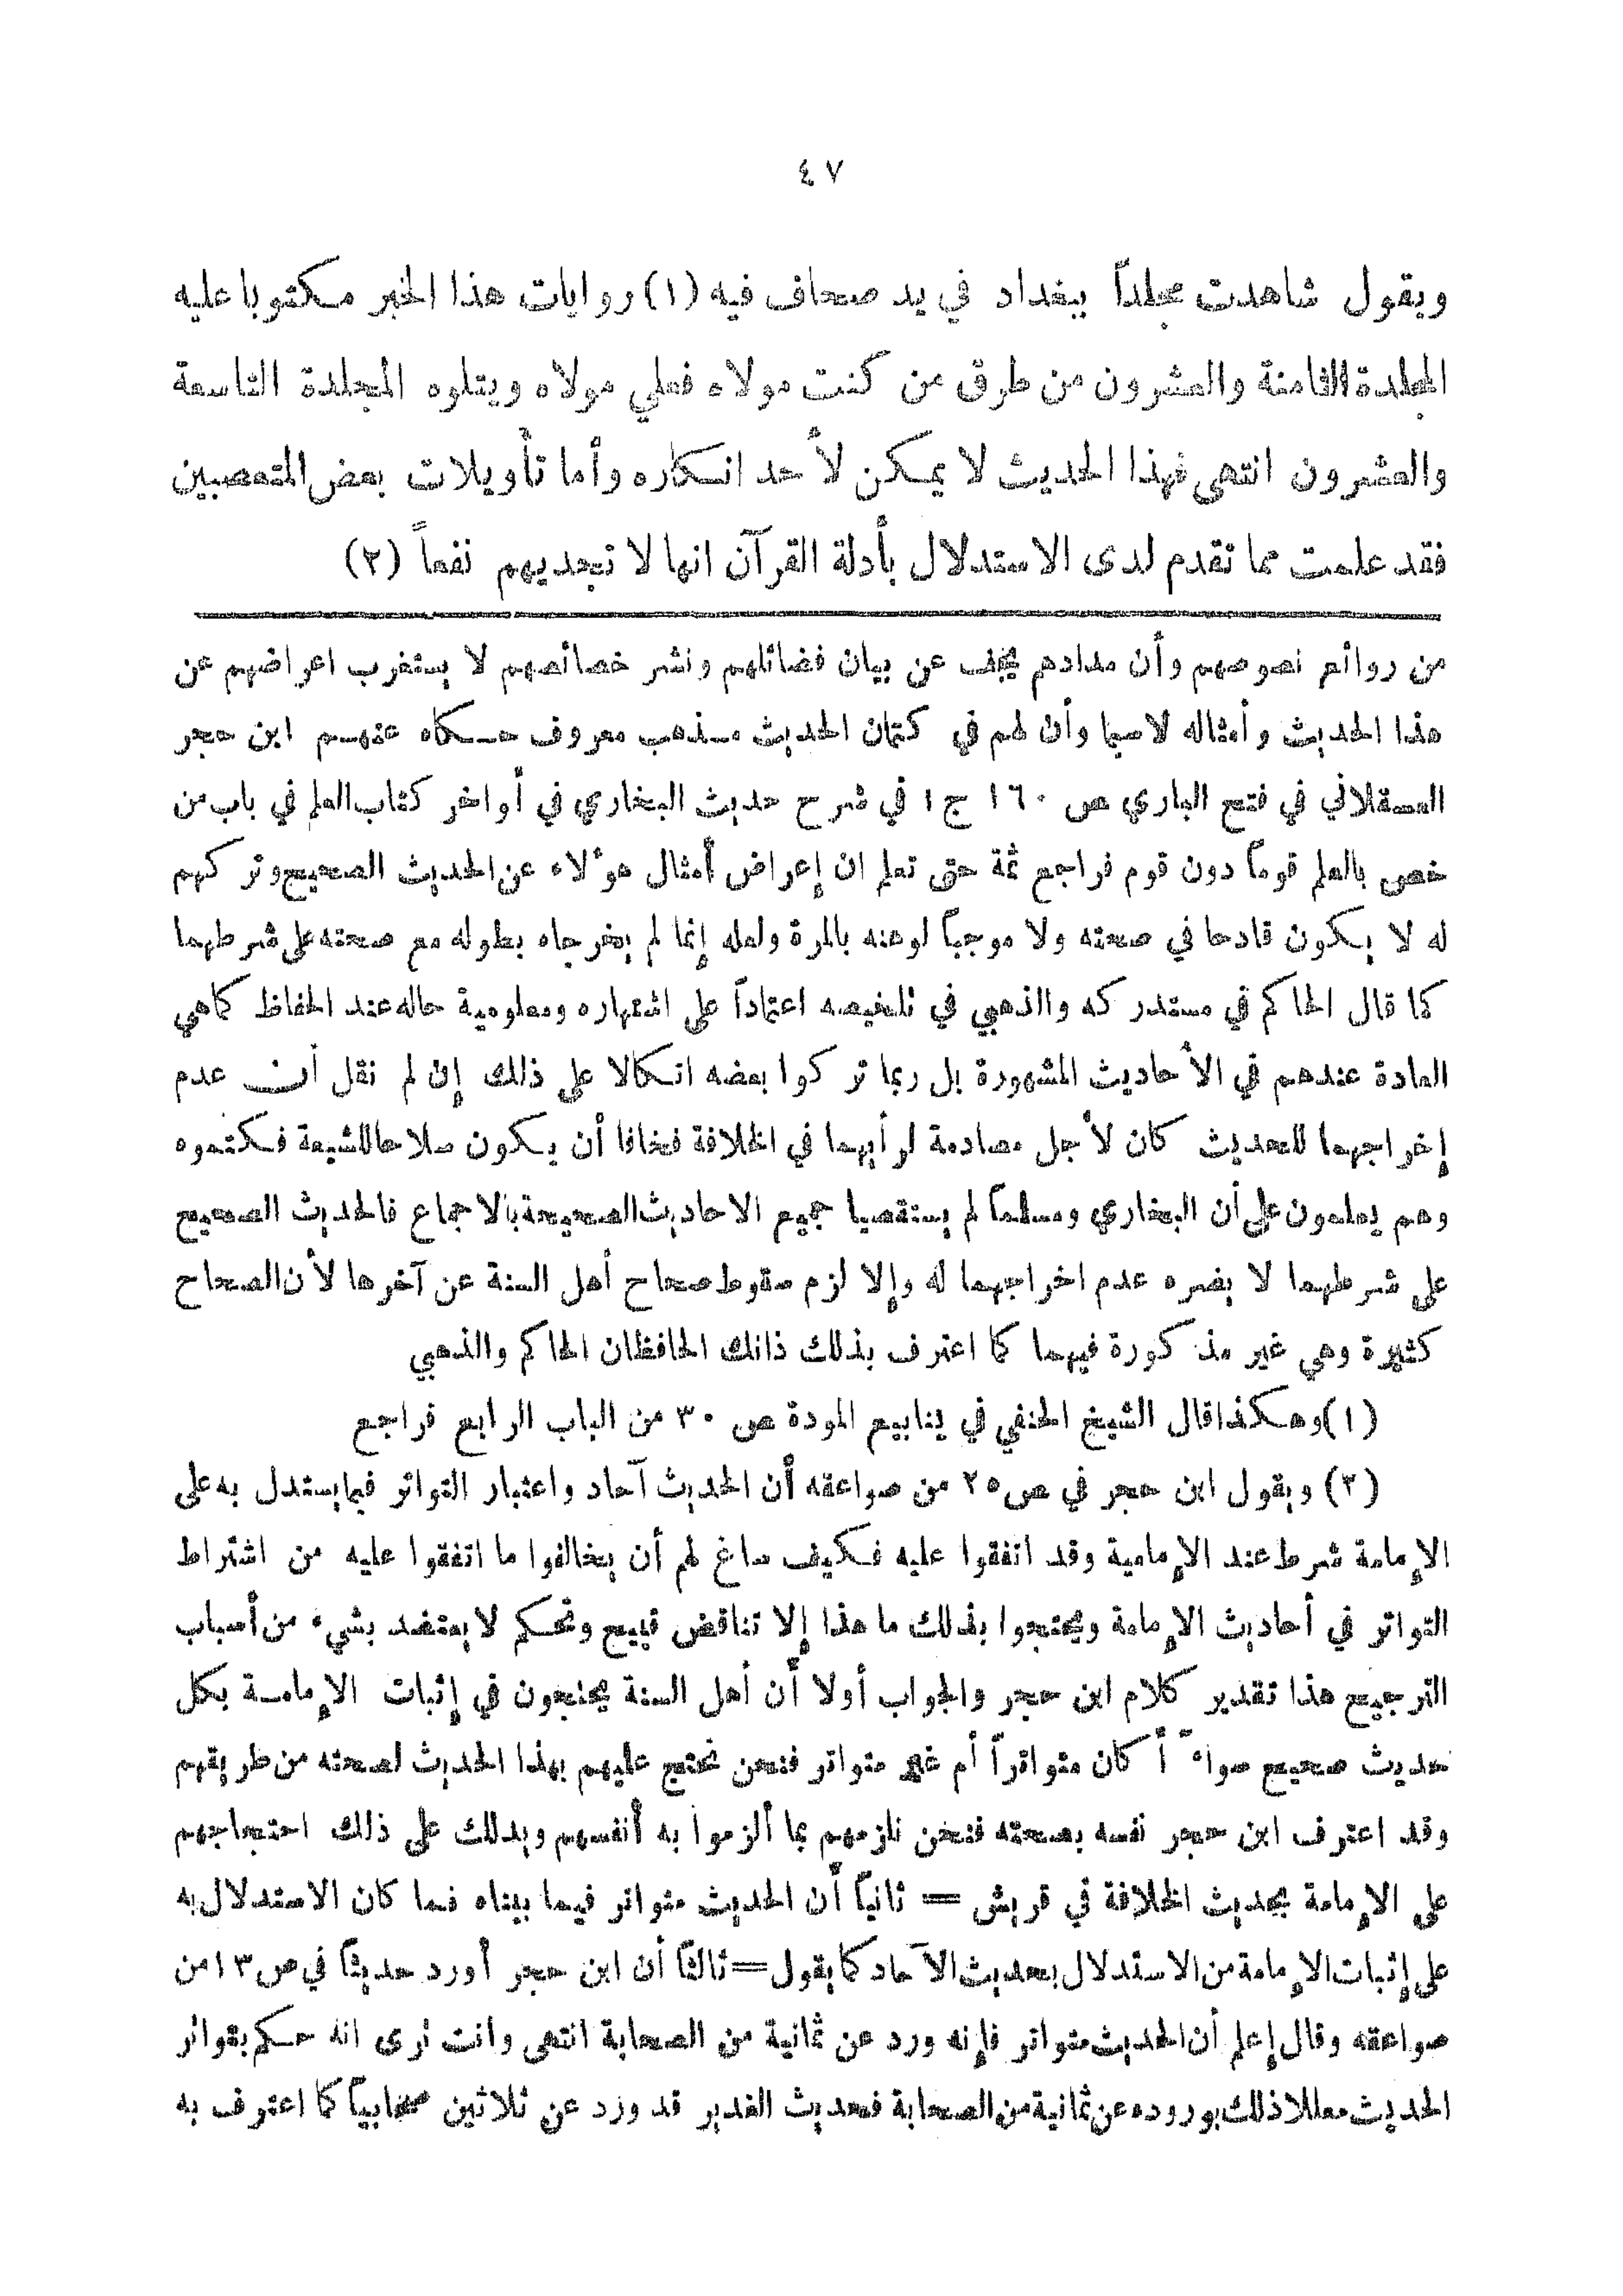 ٤٧
ويقول شاهدت مجلداً ببغداد في يد صحاف فيه (١) روايات هذا الخبر مكتوبا عليه
المجلدة الثامنة والعشرون من طرق من كنت مولاه فعلي مولاه ويتلوه المجلدة التاسعة
والعشرون انتهى فهذا الحديث لا يمكن لأحد انكاره وأما تأويلات بعض المتعصبين
فقد علمت مما تقدم لدى الاستدلال بأدلة القرآن انها لا تجديهم نفعاً (٢)
من روائع نصوصهم وأن مدادهم يجف عن بيان فضائلهم ونشر خصائصهم لا يستغرب اعراضهم عن
هذا الحديث وأمثاله لاسيما وأن لهم في كتمان الحديث مذهب معروف حكاه عنهم ابن حجر
العسقلاني في فتح الباري ص ١٦٠ ج ١ في شرح حديث البخاري في أواخر كتاب العلم في باب من
خص بالعلم قوماً دون قوم فراجع ثمة حتى تعلم ان إعراض أمثال هؤلاء عن الحديث الصحيح وتركهم
له لا يكون قادحا في صحته ولا موجباً لوهنه بالمرة ولعله إنما لم يخرجاه بطوله مع صحته على شرطهما
كما قال الحاكم في مستدركه والذهبي في تلخيصه اعتماداً على اشتهاره ومعلومية حاله عند الحفاظ كما هي
العادة عندهم في الأحاديث المشهورة بل ربما تركوا بعضه اتكالا على ذلك إن لم نقل أن عدم
إخراجهما للحديث كان لأجل مصادمة لرأيهما في الخلافة فخافا أن يكون سلاحا للشيعة فكتموه
وهم يعلمون على أن البخاري ومسلماً لم يستقصيا جميع الاحاديث الصحيحة بالاجماع فالحديث الصحيح
على شرطهما لا يضره عدم اخراجهما له وإلا لزم سقوط صحاح أهل السنة عن آخرها لأن الصحاح
كثيرة وهي غير مذكورة فيهما كما اعترف بذلك ذانك الحافظان الحاكم والذهبي
(١) وهكذا قال الشيخ الحنفي في ينابيع المودة ص ٣٠ من الباب الرابع فراجع
(٢) ويقول ابن حجر في ص ٢٥ من صواعقه أن الحديث آحاد واعتبار التواتر فيما يستدل به على
الإمامة شرط عند الإمامية وقد اتفقوا عليه فكيف ساغ لهم أن يخالفوا ما اتفقوا عليه من اشتراط
التواتر في أحاديث الإمامة ويحتجوا بذلك ما هذا إلا تناقض قبيح وتحكم لا يعتضد بشيء من أسباب
الترجيح هذا تقدير كلام ابن حجر والجواب أولا أن أهل السنة يحتجون في إثبات الإمامة بكل
حديث صحيح سواءً أكان متواتراً أم غير متواتر فنحن نحتج عليهم بهذا الحديث لصحته من طريقهم
وقد اعترف ابن حجر نفسه بصحته فنحن نلزمهم بما ألزموا به أنفسهم ويدلك على ذلك احتجاجهم
على الإمامة بحديث الخلافة في قريش = ثانياً أن الحديث متواتر فيما بيناه فما كان الاستدلال به
على إثبات الإمامة من الاستدلال بحديث الآحاد كما يقول = ثالثاً أن ابن حجر أورد حديثاً في ص ١٣ من
صواعقه وقال إعلم أن الحديث متواتر فإنه ورد عن ثمانية من الصحابة انتهى وانت ترى انه حكم بتواتر
الحديث معللا ذلك بوروده عن ثمانية من الصحابة فحديث الغدير قد ورد عن ثلاثين صحابياً كما اعترف به